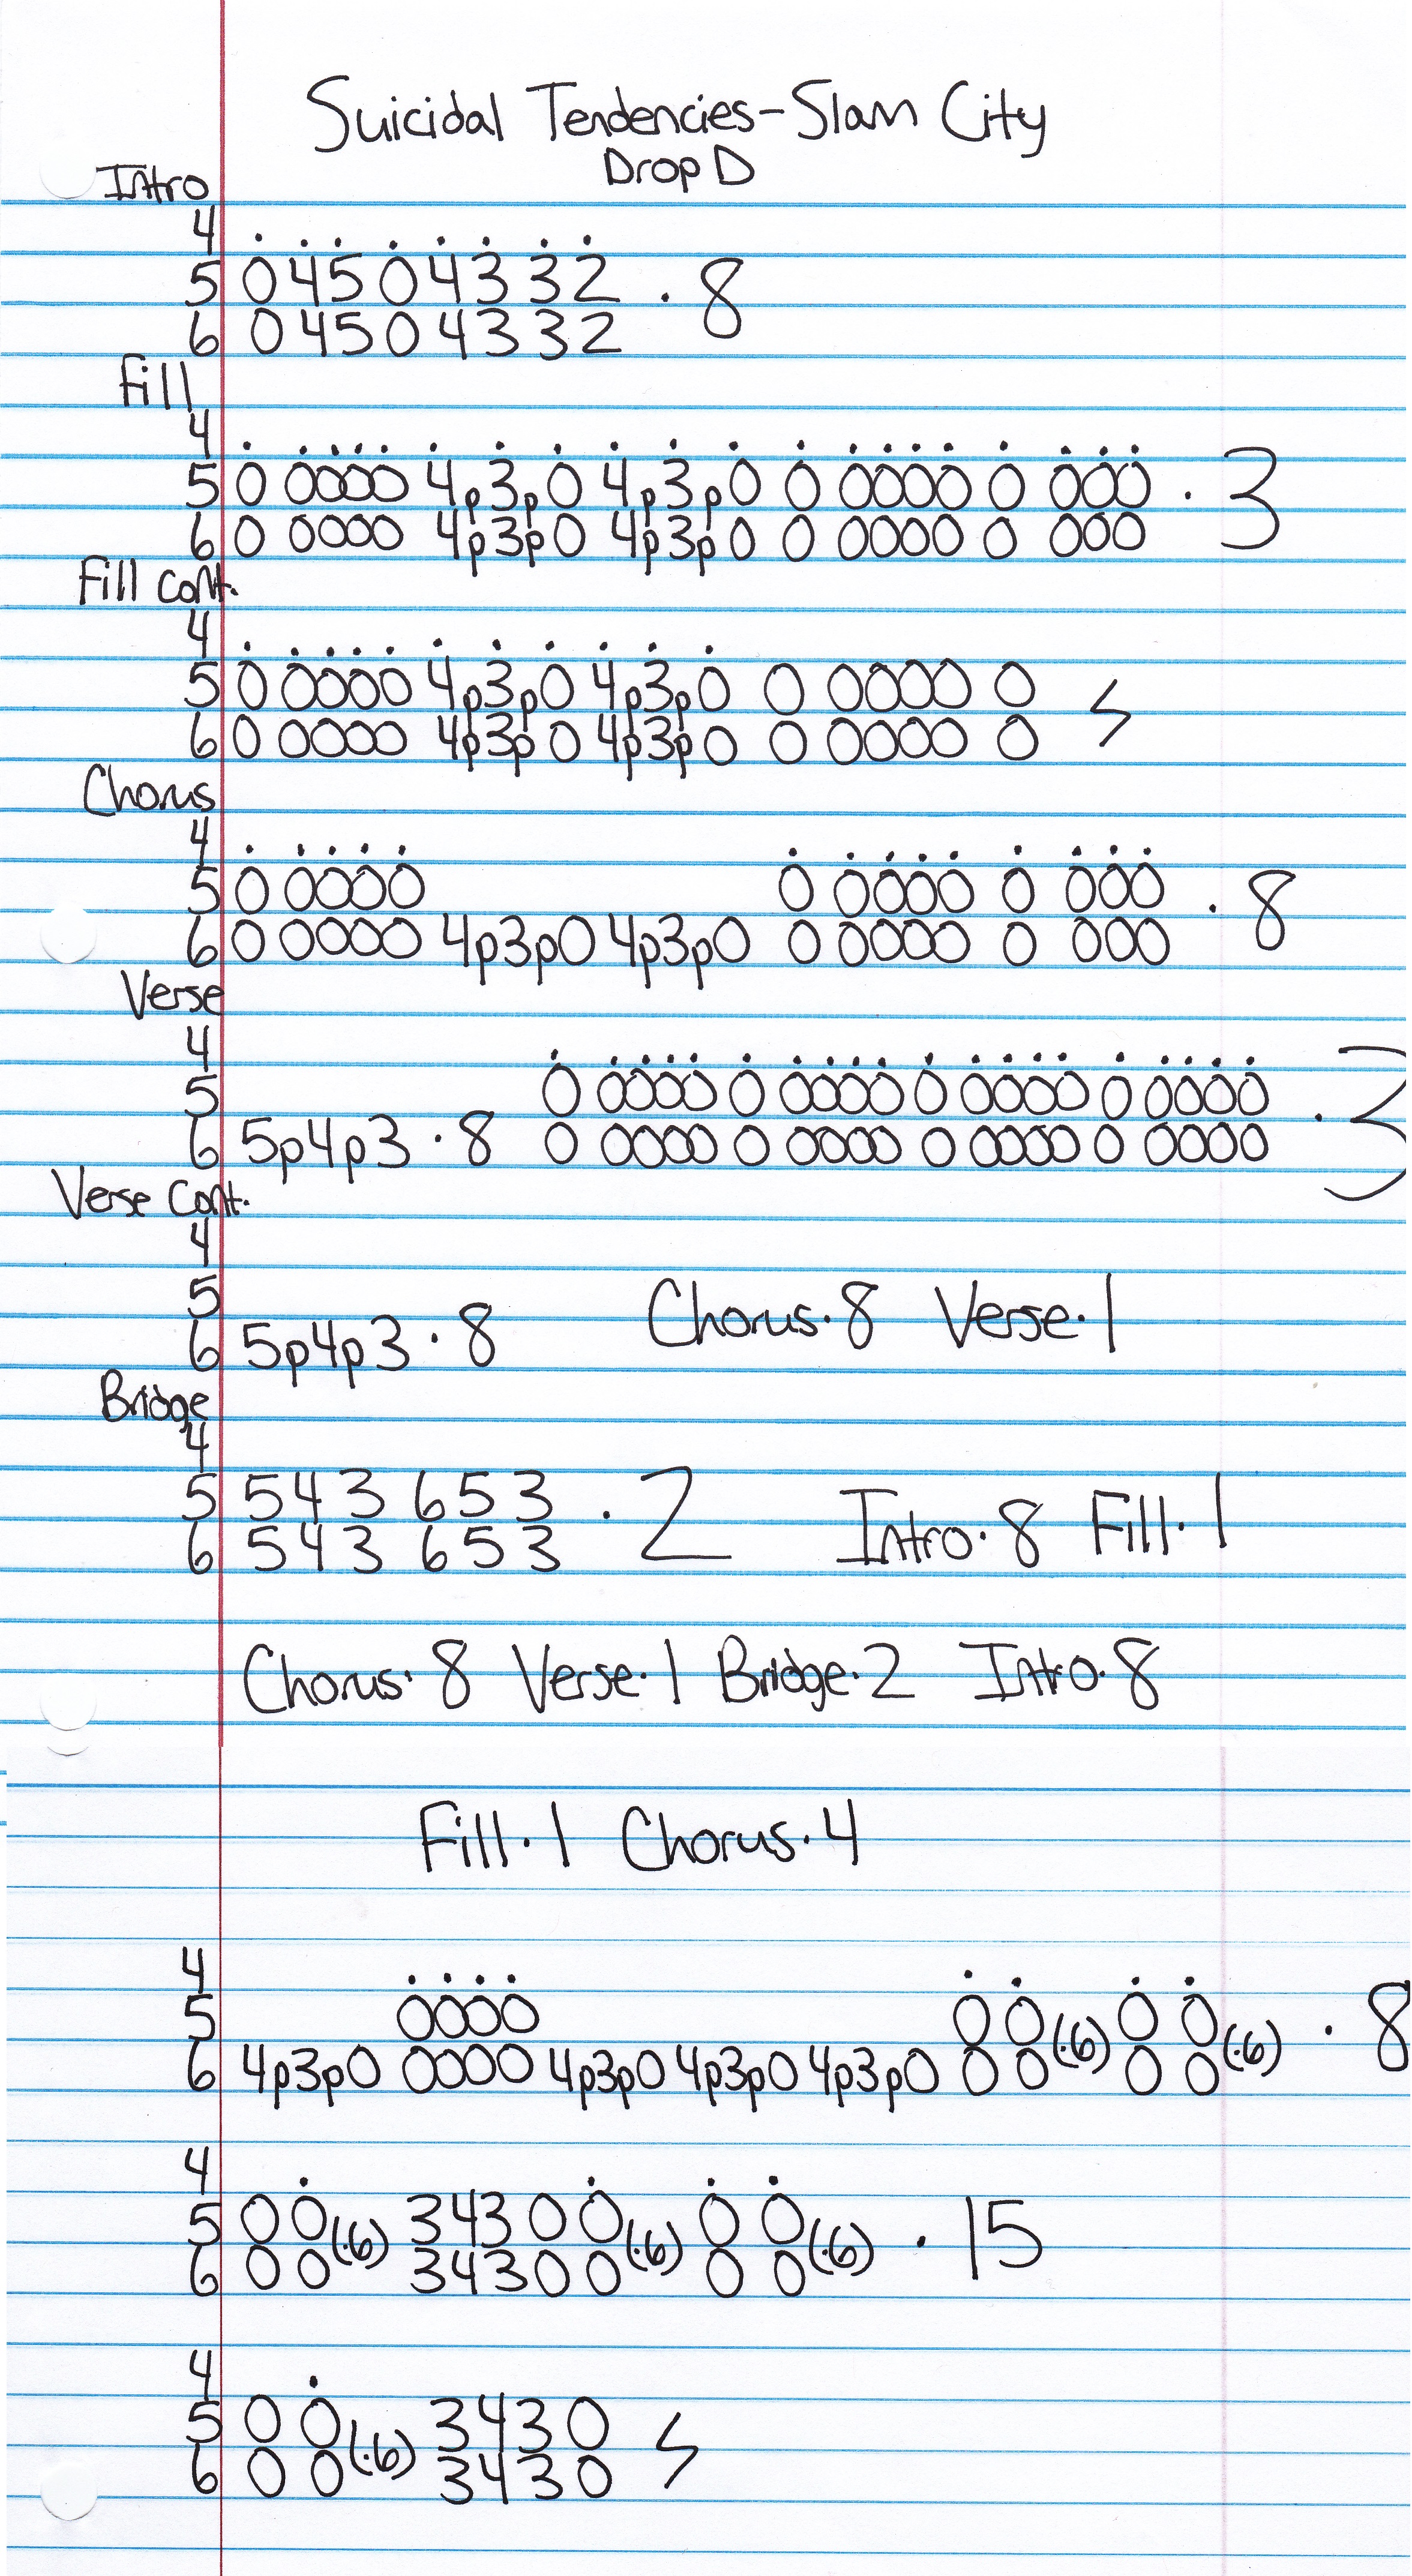 Suicidal Tendencies-Slam City
Drop D
Intro
4 . . . . . . . .
5 0 4 5 0 4 3 3 2 · 8
6 0 4 5 0 4 3 3 2
Fill
4 . .... . . . . . . . .... . ...
5 0 0000 4p3p0 4p3p0 0 0000 0 000 · 3
6 0 0000 4p3p0 4p3p0 0 0000 0 000
Fill cont.
4 . .... . . . . . .
5 0 0000 4p3p0 4p3p0 0 0000 0
6 0 0000 4p3p0 4p3p0 0 0000 0
Chorus
4 . .... . .... . ...
5 0 0000 0 0000 0 000 · 8
6 0 0000 4p3p0 4p3p0 0 0000 0 000
Verse
4 . .... . .... . .... . ....
5 0 0000 0 0000 0 0000 0 0000 · 3
6 5p4p3 · 8 0 0000 0 0000 0 0000 0 0000
Verse Cont.
4
5 Chorus·8 Verse·1
6 5p4p3 · 8
Bridge
4
5 5 4 3 6 5 3 · 2 Intro·8 Fill·1
6 5 4 3 6 5 3
Chorus·8 Verse·1 Bridge·2 Intro·8
Fill·1 Chorus·4
4 .... . . . .
5 0000 0 0(·6) 0 0(·6) · 8
6 4p3p0 0000 4p3p0 4p3p0 4p3p0 0 0 0 0
4 . . . .
5 0 0(·6) 3 4 3 0 0(·6) 0 0(·6) · 15
6 0 0 3 4 3 0 0 0 0
4 .
5 0 0(·6) 3 4 3 0
6 0 0 3 4 3 0